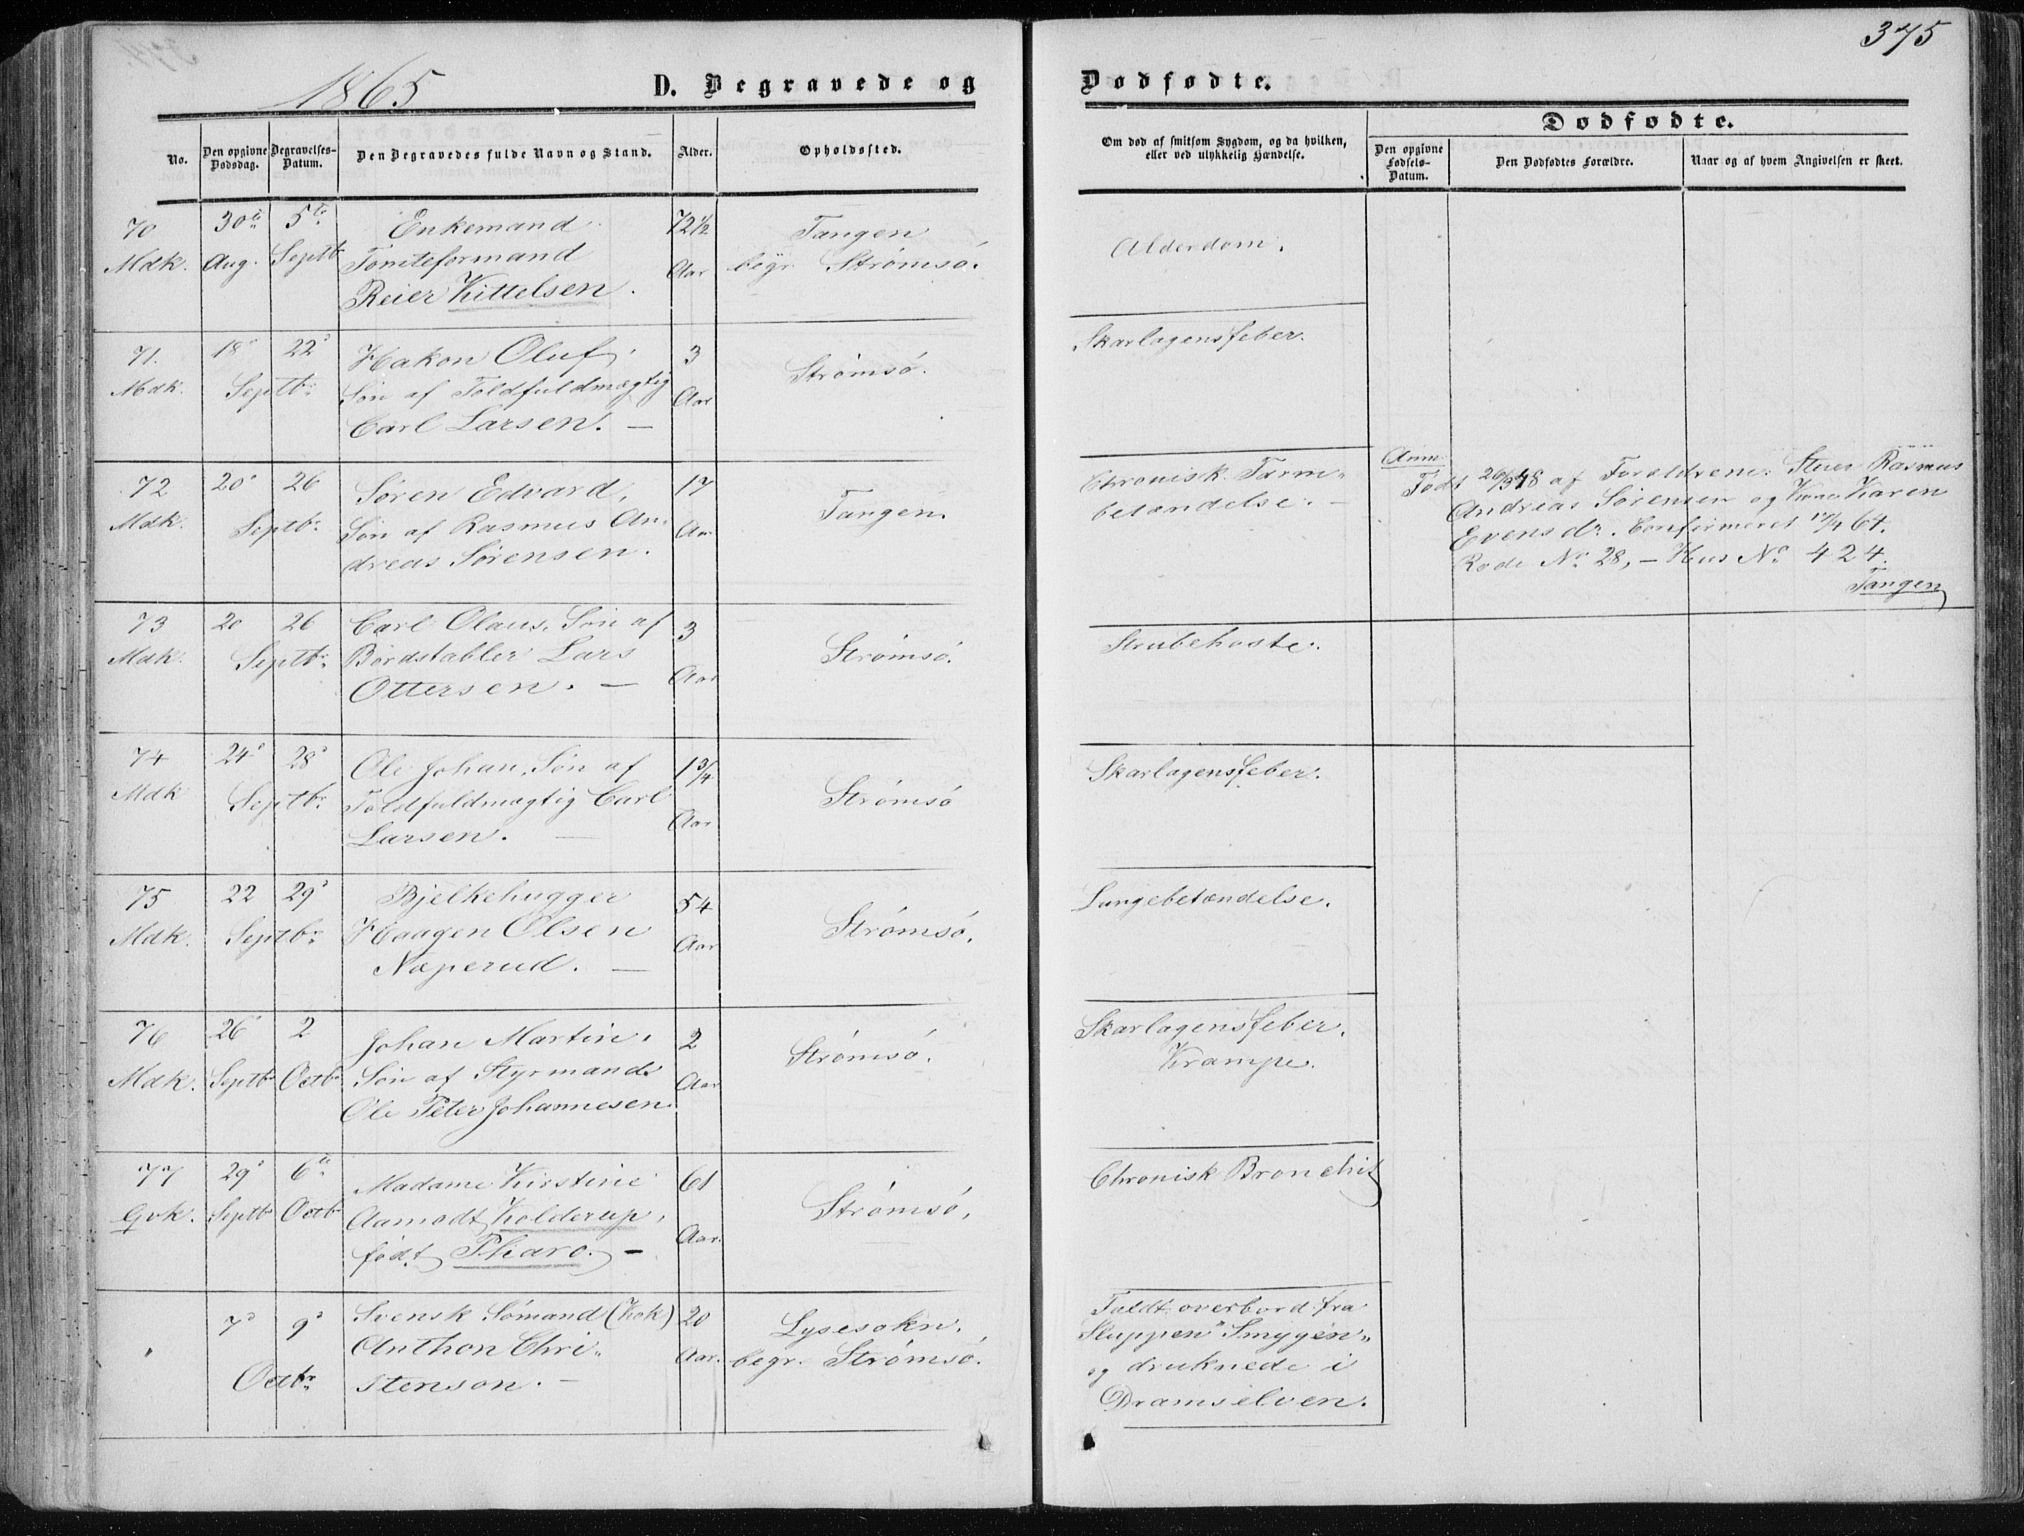 375
1865
D. Begravede og Dødfødte.
No.
Den opgivne Dødsdag.
Begravelses-Datum.
Den Begravedes fulde Navn og Stand.
Alder.
Opholdssted.
Om død af smitsom Sygdom, og da hvilken, eller ved ulykkelig Hændelse.
Dødfødte.
Den opgivne Fødsels-Datum.
Den Dødfødtes Forældre.
Naar og af hvem Angivelsen er skeet.
70 30te 5te Enkemand 72 1/2 Tangen
Mdk. Aug. Septbr Tomteformand Aar begr. Strømsö.
Reier Kittelsen.
Alderdom.
71. 18 22 Hakon Oluf, 3 Strømsö.
Mdk. Septbr. Søn af Toldfuldmægtig Aar
Carl Larsen. —
Skarlagensfeber.
72 20 26 Søren Edvard, 17 Tangen.
Mdk. Septbr. Søn af Rasmus An-
dreas Sørensen.
Aar
Chronisk Tarm-
betændelse. —
Anm.
Født 26/9 48 af Forældrene: Stuer Rasmus
Andreas Sørensen og Kone Karen
Evensdr. Confirmeret 17/4 64.
Rode No. 28, — Hus No. 424.
Tangen
73 20 26 Carl Olaus, Søn af 3 Strømsö.
Mdk. Septbr. Bordstabler Lars
Ottersen. — Aar
Strubehoste.
74 24 28 Ole Johan, Søn af 1 3/4 Strømsö
Mdk Septbr. Toldfuldmægtig Carl
Larsen. — Aar
Skarlagensfeber.
75 22 29 Bjelkehugger 54 Strømsö.
Mdk. Septbr. Haagen Olsen Aar
Næperud. —
Lungebetændelse.
76 26 2 Johan Martin, 2 Strømsö.
Mdk. Septbr Octbr Søn af Styrmand Aar
Ole Peter Johannesen
Skarlagensfeber.
Krampe.
77 29 6te Madame Kirstine 61 Strømsö,
Gvk. Septbr Octbr Aamodt Kolderup,
født Pharo. — Aar.
Chronisk Bronchit
7 9 Svensk Sømand (Kok) 20 Lysesokn.
Anthon Chri- Aar. begr. Strømsö.
Octbr stenson. —
Faldt overbord fra
Sluppen "Smygen"
og druknede i
Dramselven.